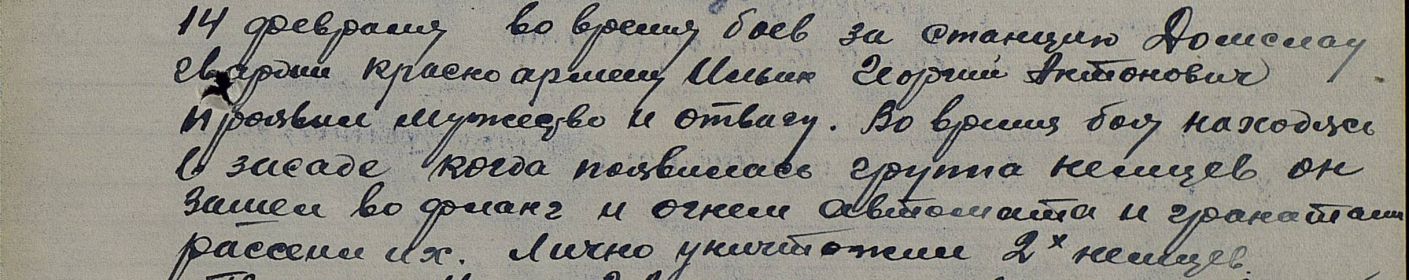 14 февраля во время боев за станцию Домслау
гвардии красноармеец Ильин Георгий Антонович
проявил мужество и отвагу. Во время боя находясь
в засаде когда появилась группа немцев он
зашел во фланг и огнем автомата и гранатами
рассеял их. Лично уничтожил 2х немцев.